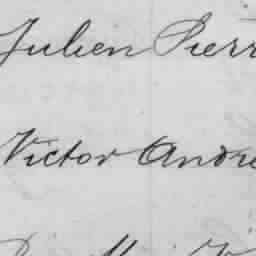 Julien Pierr
Victor Andre